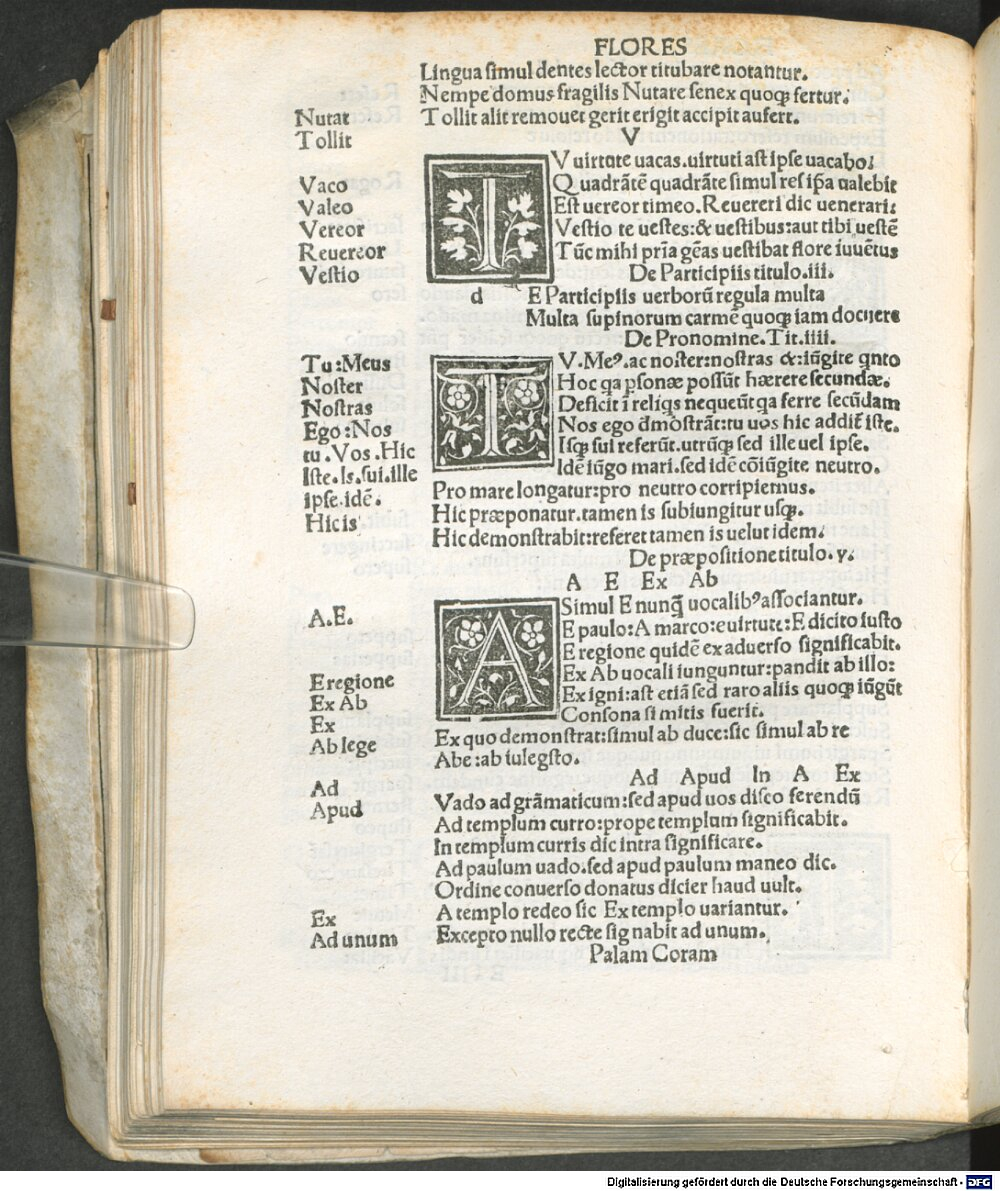 FLORES
Lingua simul dentes lector titubare notantur.
Nempe domus fragilis Nutare senex quoqꝫ fertur.
Nutat
Tollit alit remouet gerit erigit accipit aufert.
Tollit
V
T V uirtute uacas.uirtuti ast ipse uacabo:
Vaco
Quadrãtẽ quadrãte simul res ip̃a ualebit
Valeo
Est uereor timeo.Reuereri dic uenerari:
Vereor
Vestio te uestes:& uestibus:aut tibi uestẽ
Reuereor
Tũc mihi prĩa gẽas uestibat flore iuuẽtus
Vestio
De Participiis titulo.iii.
d E Participiis uerborũ regula multa
Multa supinorum carmẽ quoqꝫ iam docuere
De Pronomine.Tit.iiii.
Tu:Meus
T V.Meꝰ.ac noster:nostras &:iũgite qnto
Noster
Hoc qa psonæ possũt hærere secundæ.
Nostras
Deficit ĩ reliqs nequeũt qa ferre secũdam
Ego:Nos
Nos ego dmõstrãt:tu uos hic addit iste.
tu.Vos.Hic
Isqꝫ sui referũt.utrũqꝫ sed ille uel ipse.
Iste.Is.sui.ille
Idẽ iũgo mari.sed idẽ cõiũgite neutro.
ipse.idẽ.
Pro mare longatur:pro neutro corripiemus.
Hic is
Hic præponatur.tamen is subiungitur usqꝫ.
Hic demonstrabit:referet tamen is uelut idem.
De præpositione titulo.v.
A E Ex Ab
A Simul E nunq̃ uocalibꝰ associantur.
A.E.
E paulo:A marco:e uirtute:E dicito iusto
E regione quidẽ ex aduerso significabit.
Ex Ab uocali iunguntur:pandit ab illo:
E regione
Ex igni:ast etiã sed raro aliis quoqꝫ iũgũt
Ex Ab
Consona si mitis fuerit.
Ex
Ex quo demonstrat:simul ab duce:sic simul ab re
Ab lege
Abe:ab iulegsto.
Ad Apud In A Ex
Ad
Vado ad grãmaticum:sed apud uos disco ferendũ
Apud
Ad templum curro:prope templum significabit.
In templum curris dic intra significare.
Ad paulum uado.sed apud paulum maneo dic.
Ordine conuerso donatus dicier haud uult.
A templo redeo sic Ex templo uariantur.
Ex
Excepto nullo recte signabit ad unum.
Ad unum
Palam Coram
Digitalisierung gefördert durch die Deutsche Forschungsgemeinschaft - DFG